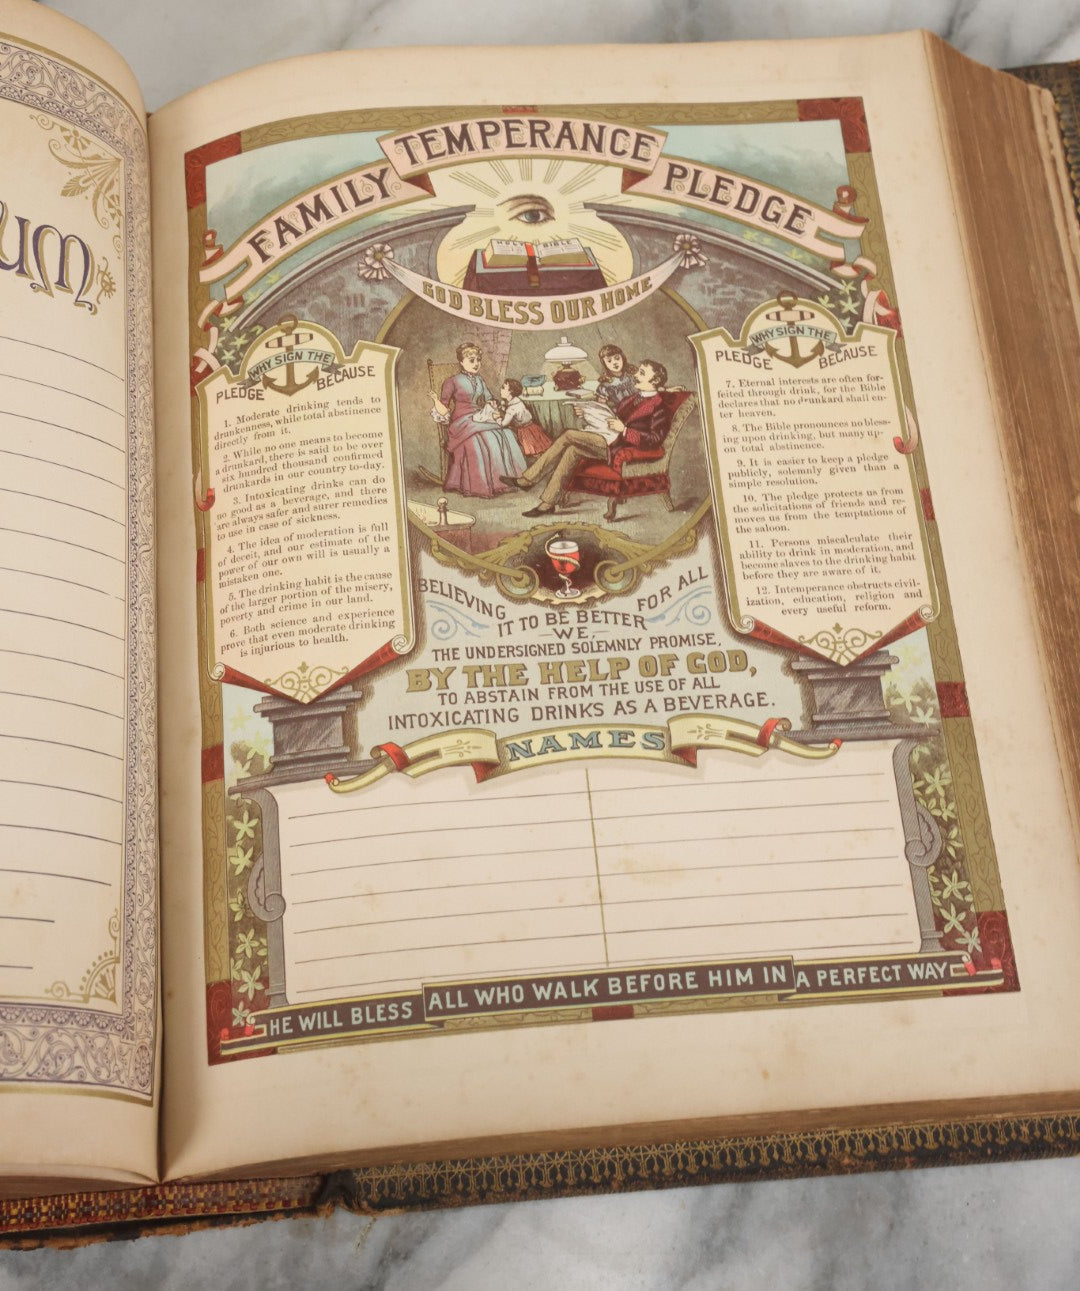 UM
FAMILY TEMPERANCE PLEDGE
HOLY BIBLE
GOD BLESS OUR HOME
WHY SIGN THE
PLEDGE BECAUSE
1. Moderate drinking tends to
drunkenness, while total abstinence
directly from it.
2. While no one means to become
a drunkard, there is said to be over
six hundred thousand confirmed
drunkards in our country to-day.
3. Intoxicating drinks can do
no good as a beverage, and there
are always safer and surer remedies
to use in case of sickness.
4. The idea of moderation is full
of deceit, and our estimate of the
power of our own will is usually a
mistaken one.
5. The drinking habit is the cause
of the larger portion of the misery,
poverty and crime in our land.
6. Both science and experience
prove that even moderate drinking
is injurious to health.
WHY SIGN THE
PLEDGE BECAUSE
7. Eternal interests are often for-
feited through drink, for the Bible
declares that no drunkard shall en-
ter heaven.
8. The Bible pronounces no bless-
ing upon drinking, but many up-
on total abstinence.
9. It is easier to keep a pledge
publicly, solemnly given than a
simple resolution.
10. The pledge protects us from
the solicitations of friends and re-
moves us from the temptations of
the saloon.
11. Persons miscalculate their
ability to drink in moderation, and
become slaves to the drinking habit
before they are aware of it.
12. Intemperance obstructs civil-
ization, education, religion and
every useful reform.
BELIEVING IT TO BE BETTER FOR ALL
—WE,—
THE UNDERSIGNED SOLEMNLY PROMISE,
BY THE HELP OF GOD,
TO ABSTAIN FROM THE USE OF ALL
INTOXICATING DRINKS AS A BEVERAGE.
NAMES
HE WILL BLESS ALL WHO WALK BEFORE HIM IN A PERFECT WAY